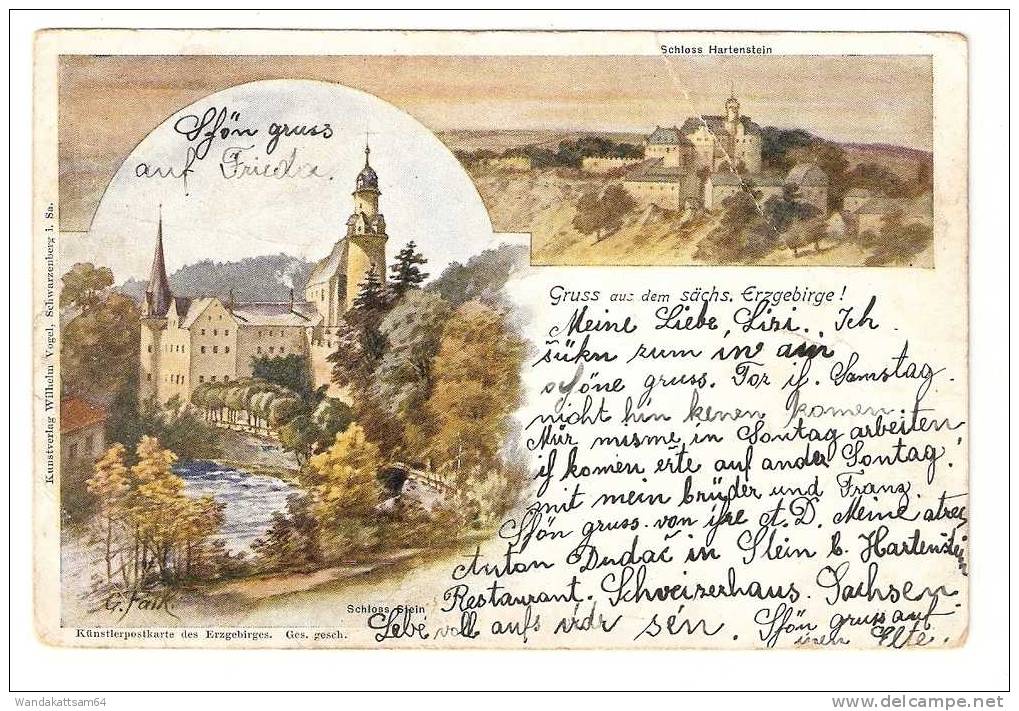 Schloss Hartenstein
Schön gruss
auf Frieda.
Kunstverlag Wilhelm Vogel, Schwarzenberg i. Sa.
Gruss aus dem sächs. Erzgebirge!
Meine Liebe, Lizi. Ich
šükn zum in ain
schöne gruss. For if. Samstag.
nicht hin kenen komen.
Mür misme in Sontag arbeiten
if komen erte auf ander Sontag.
mit mein brüder und Franz.
Schön gruss von ihre A. D. Meine atres
Anton Dudač in Stein b. Hartenstein
Restaurant. Schweizerhaus. Sachsen.
Lebe voll aufs vidr sén. Schön gruss auf
Elte.
G. Falk.
Schloss Stein
Künstlerpostkarte des Erzgebirges. Ges. gesch.
Wandakattsam64
http://www.delcampe.net